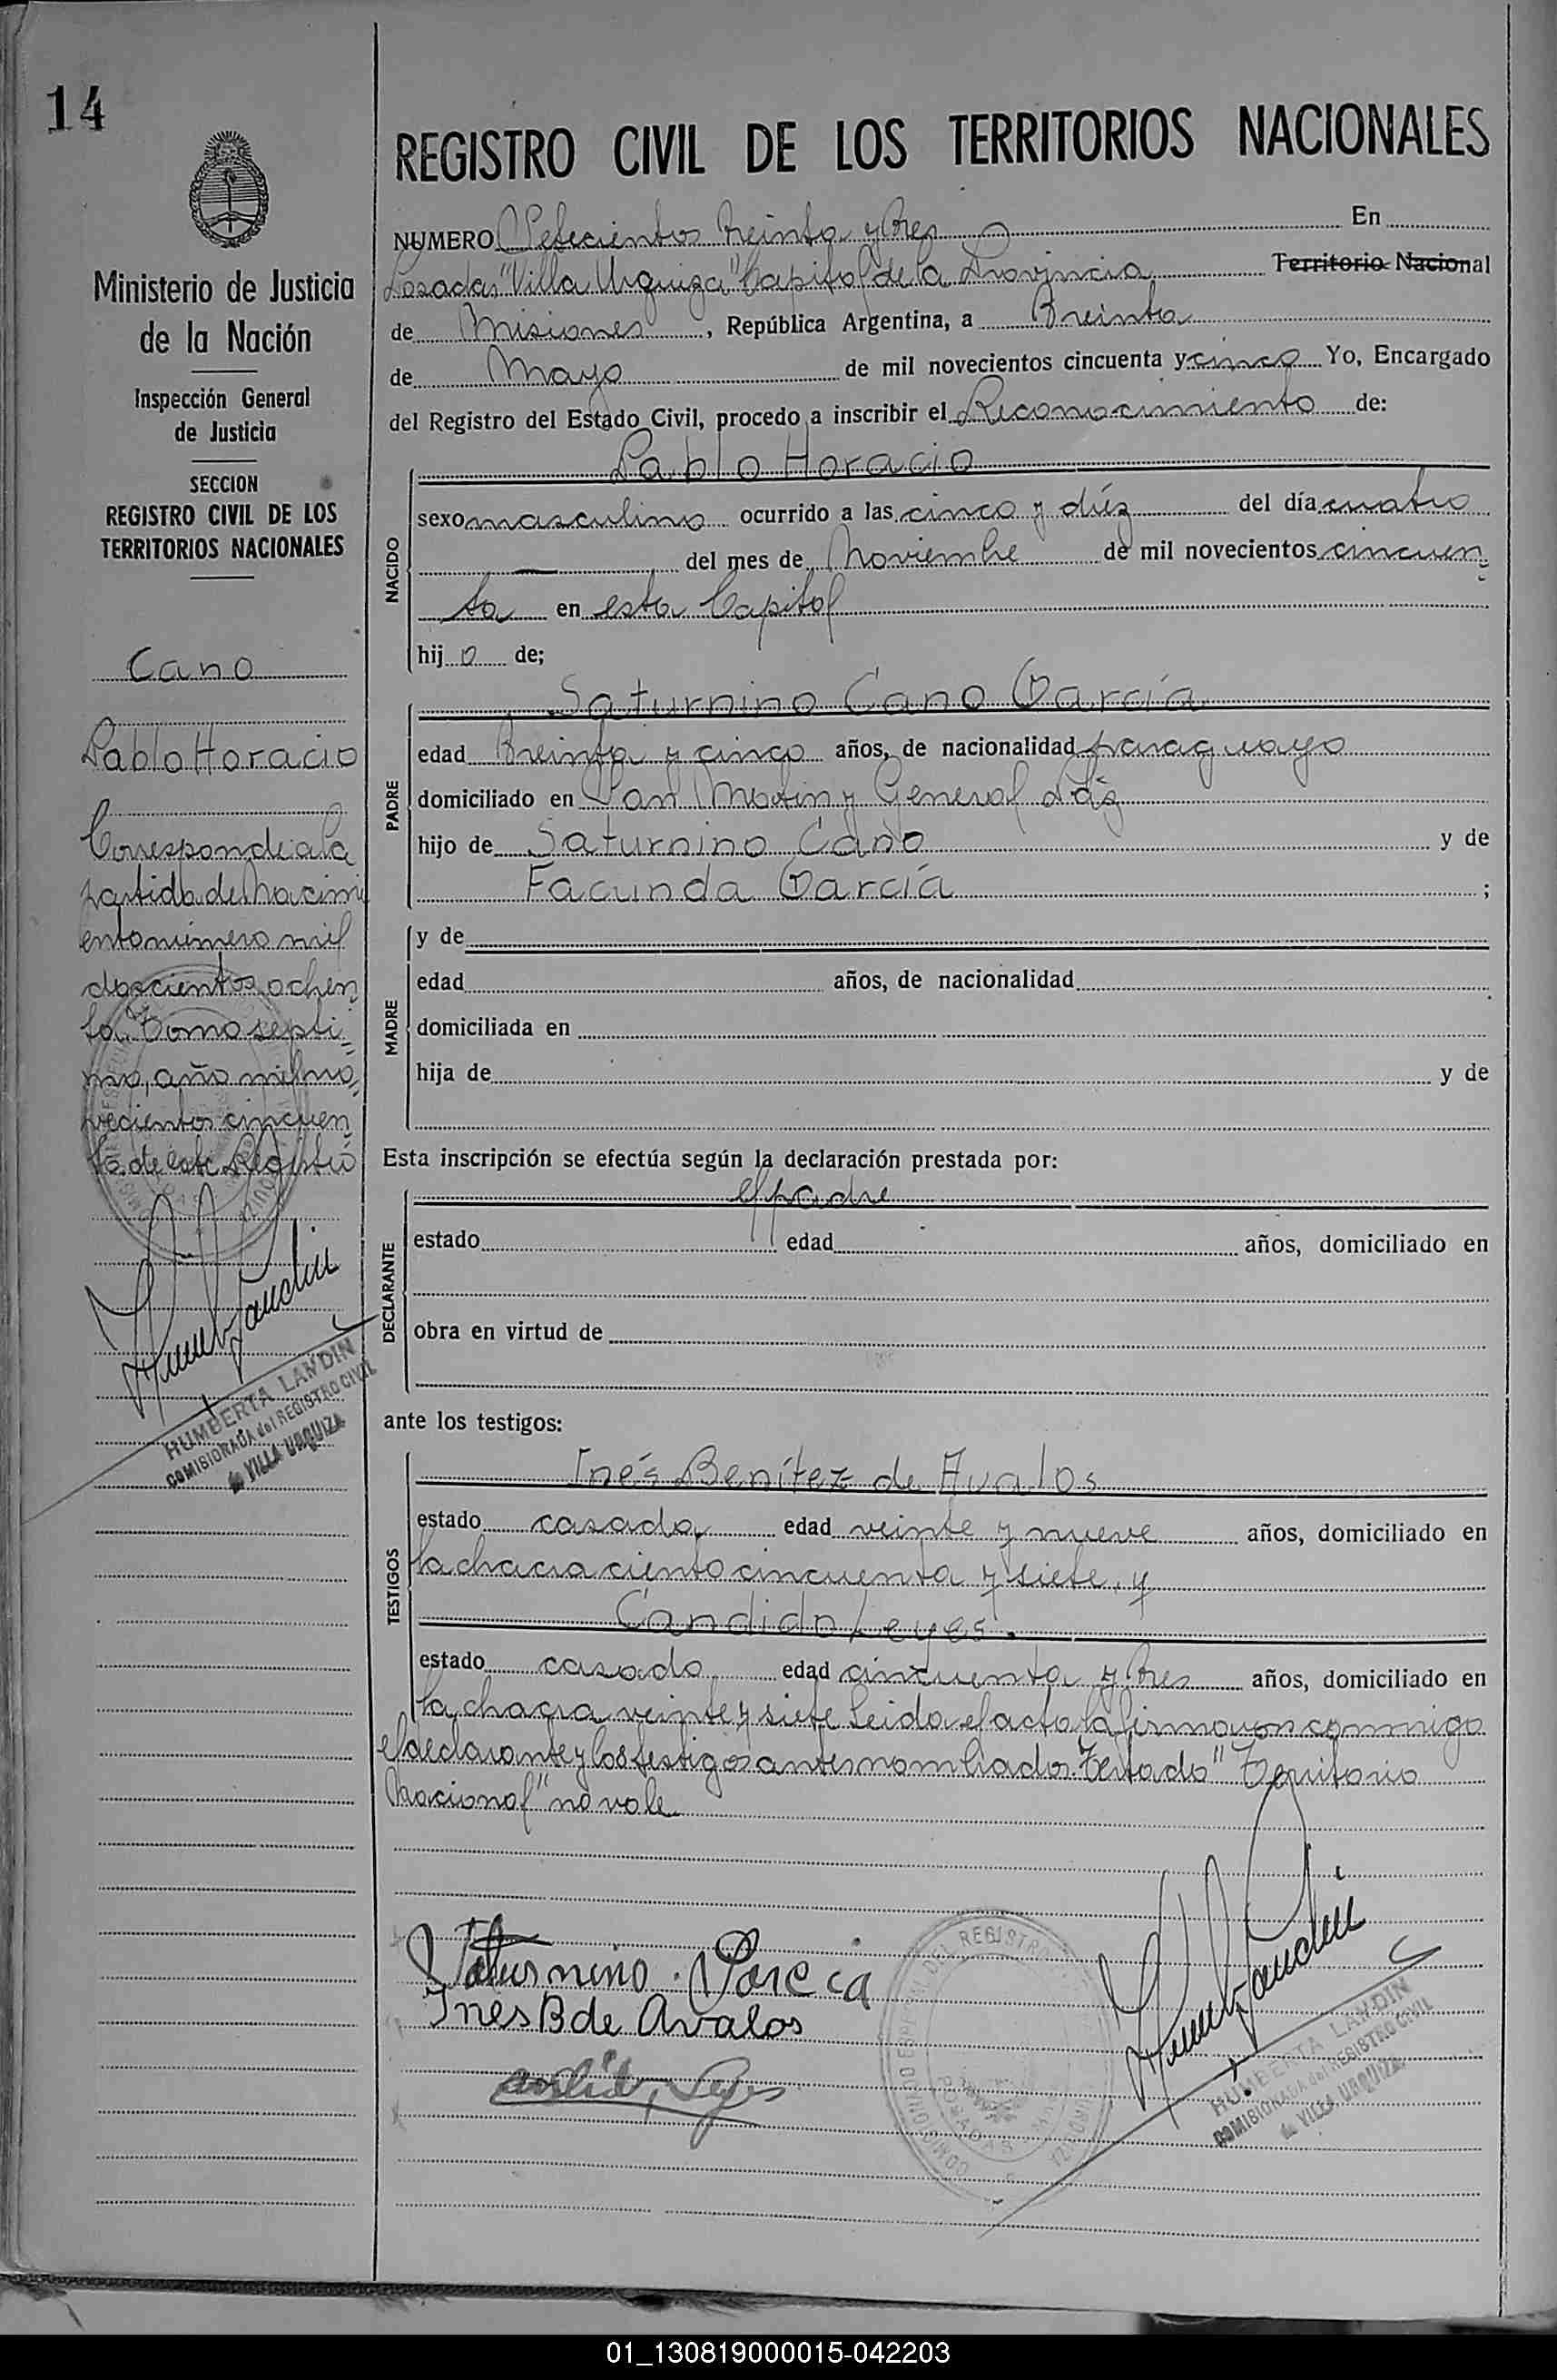 14
Ministerio de Justicia
de la Nación
Inspección General
de Justicia
SECCION
REGISTRO CIVIL DE LOS
TERRITORIOS NACIONALES
Cano
Pablo Horacio
Corresponde a la
partida de Nacimi
ento número mil
doscientos ochen
ta. Tomo septi
mo, año mil no
vecientos cincuen
ta de este Registro
HUMBERTA LANDIN
COMISIONADA del REGISTRO CIVIL
de VILLA URQUIZA
REGISTRO CIVIL DE LOS TERRITORIOS NACIONALES
NUMERO Setecientos treinta y tres En
Posadas "Villa Urquiza" Capital de la Provincia Territorio Nacional
de Misiones, República Argentina, a Treinta
de Mayo de mil novecientos cincuenta y cinco Yo, Encargado
del Registro del Estado Civil, procedo a inscribir el Reconocimiento de:
NACIDO
Pablo Horacio
sexo masculino ocurrido a las cinco y diéz del día cuatro
del mes de Noviembre de mil novecientos cincuen
ta en esta Capital
hij o de;
PADRE
Saturnino Cano García
edad Treinta y cinco años, de nacionalidad paraguayo
domiciliado en San Martin y General
hijo de Saturnino Cano y de
Facunda García ;
MADRE
y de
edad años, de nacionalidad
domiciliada en
hija de y de
Esta inscripción se efectúa según la declaración prestada por:
DECLARANTE
el padre
estado edad años, domiciliado en
obra en virtud de
ante los testigos:
TESTIGOS
Inés Benítez de Avalos
estado casada edad veinte y nueve años, domiciliado en
la chacra ciento cincuenta y siete, y
Candido Leyes.
estado casado edad cincuenta y tres años, domiciliado en
la chacra veinte y siete Leida el acta la firmaron conmigo
el declarante y los testigos antes nombrados. Testado "Territorio
Nacional" no vale
Saturnino. Garcia
Ines B de Avalos
HUMBERTA LANDIN
COMISIONADA del REGISTRO CIVIL
de VILLA URQUIZA
01_130819000015-042203